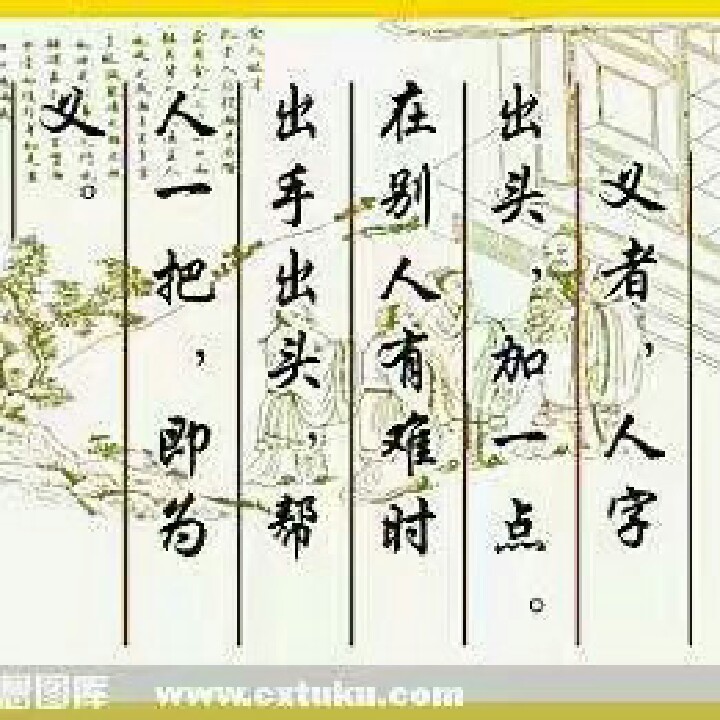 义者，人字
出头，加一点。
在别人有难时
出手出头，帮
人一把，即为
义。
图库 www.cxtuku.com